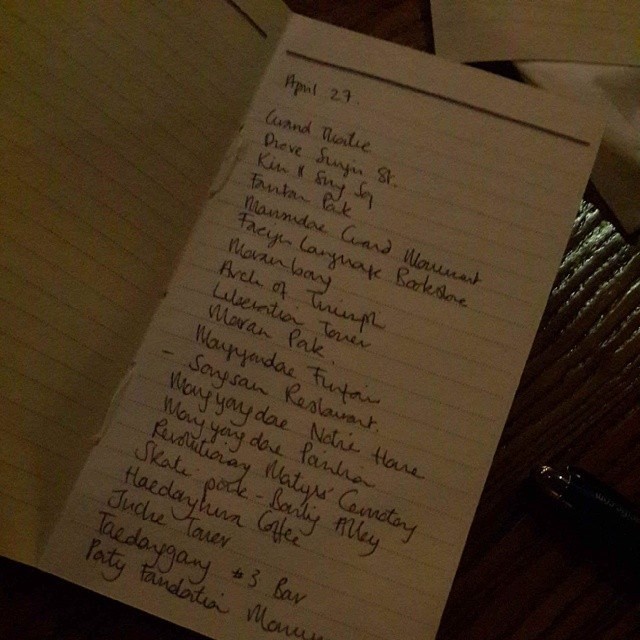 April 27.
Grand Theatre
Drove Sungri St.
Kim Il Sung Sq
Fountain Park
Mansudae Grand Monument
Foreign Language Bookstore
Moranbong
Arch of Triumph
Liberation Tower
Moran Park.
Mangyondae Funfair
- Songsan Restaurant.
Mangyongdae Native House
Mangyongdae Pavilion
Revolutionary Martyrs' Cemetery
Skate-park - Bowling Alley
Coffee
Juche Tower
Taedonggang #3 Bar
Party Foundation